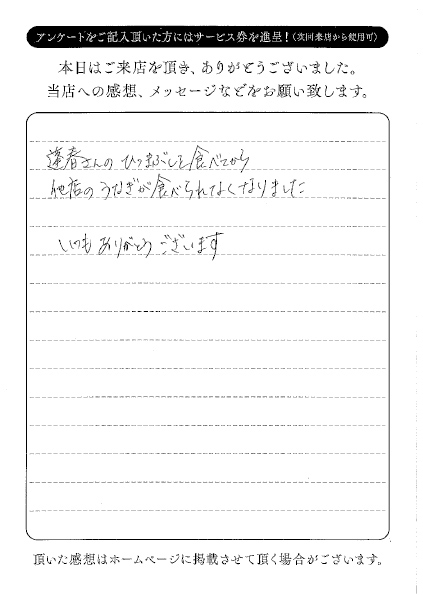 アンケートをご記入頂いた方にはサービス券を進呈!(次回来店から使用可)
本日はご来店を頂き、ありがとうございました。
当店への感想、メッセージなどをお願い致します。
蓬春さんの ひつまぶしを食べてから
他店のうなぎが食べられなくなりました
いつも ありがとう ございます
頂いた感想はホームページに掲載させて頂く場合がございます。